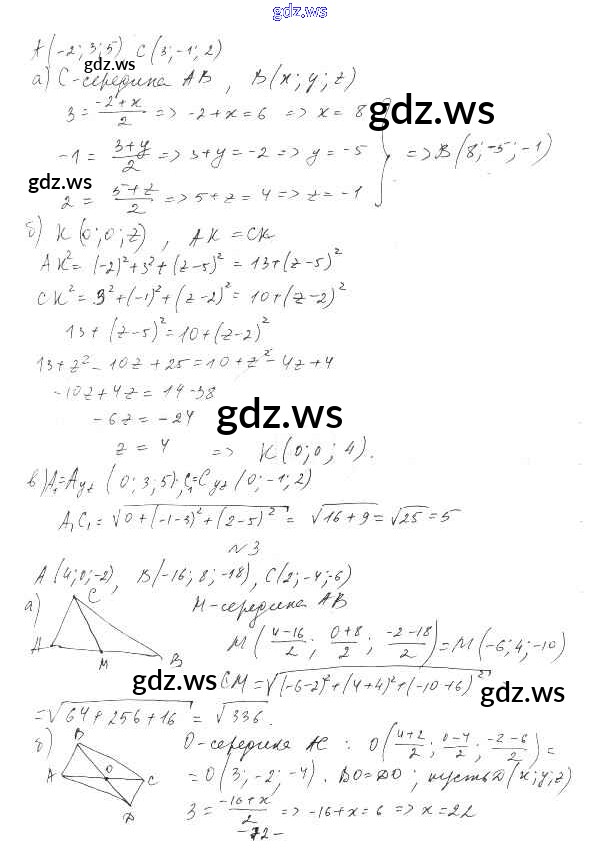 gdz.ws
A(-2; 3; 5) C(3; -1; 2)
а) C-середина AB, B(x; y; z)
3 = (-2+x)/2 => -2+x=6 => x=8
-1 = (3+y)/2 => 3+y=-2 => y=-5 } => B(8; -5; -1)
2 = (5+z)/2 => 5+z=4 => z=-1
gdz.ws
gdz.ws
gdz.ws
б) K(0; 0; z), AK=CK
AK²=(-2)²+3²+(z-5)²=13+(z-5)²
CK²=3²+(-1)²+(z-2)²=10+(z-2)²
13+(z-5)²=10+(z-2)²
13+z²-10z+25=10+z²-4z+4
-10z+4z=14-38
-6z=-24
gdz.ws
z=4 => K(0; 0; 4).
в) A₁=Ayz(0; 3; 5); C₁=Cyz(0; -1; 2)
A₁C₁=√(0+(-1-3)²+(2-5)²)=√(16+9)=√25=5
№3
A(4; 0; -2), B(-16; 8; -18), C(2; -4; -6)
а) M-середина AB
C
A
M
B
M((4-16)/2; (0+8)/2; (-2-18)/2)=M(-6; 4; -10)
CM=√((-6-2)²+(4+4)²+(-10+6)²)
gdz.ws
gdz.ws
=√(64+256+16)=√336.
б) O-середина AC: O((4+2)/2; (0-4)/2; (-2-6)/2)=
B
A
O
C
D
=O(3; -2; -4). BO=DO; пусть D(x; y; z)
3=(-16+x)/2 => -16+x=6 => x=22
-72-
gdz.ws